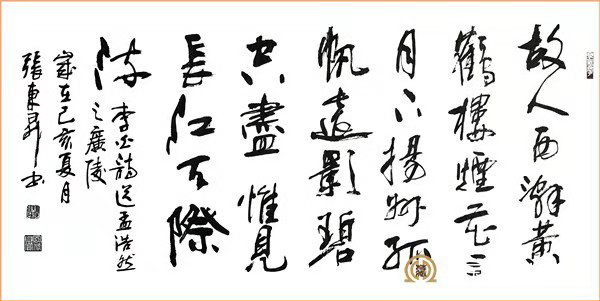 故人西辭黄
鶴樓煙花三
月下揚州孤
帆遠影碧
空盡惟見
長江天際
流
李白詩送孟浩然
之廣陵
歲在己亥夏月
張東昇书